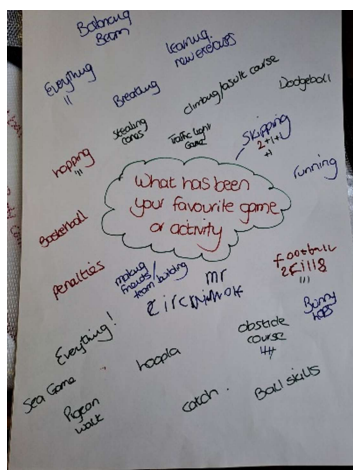 Balancing
Beam
learning
new exercises
Everything
II
Breathing
climbing/assault course
Dodgeball
Stealing
cones
Traffic light
Game
Skipping
2+1+1
+1
hopping
III
running
What has been
your favourite game
or activity
Basketball
penalties
making
friends/
team building
mr
wolf
football
skills
III
Bunny
hops
Everything!
hoopla
obstacle
course
Sea Game
Pigeon
walk
catch
Ball skills